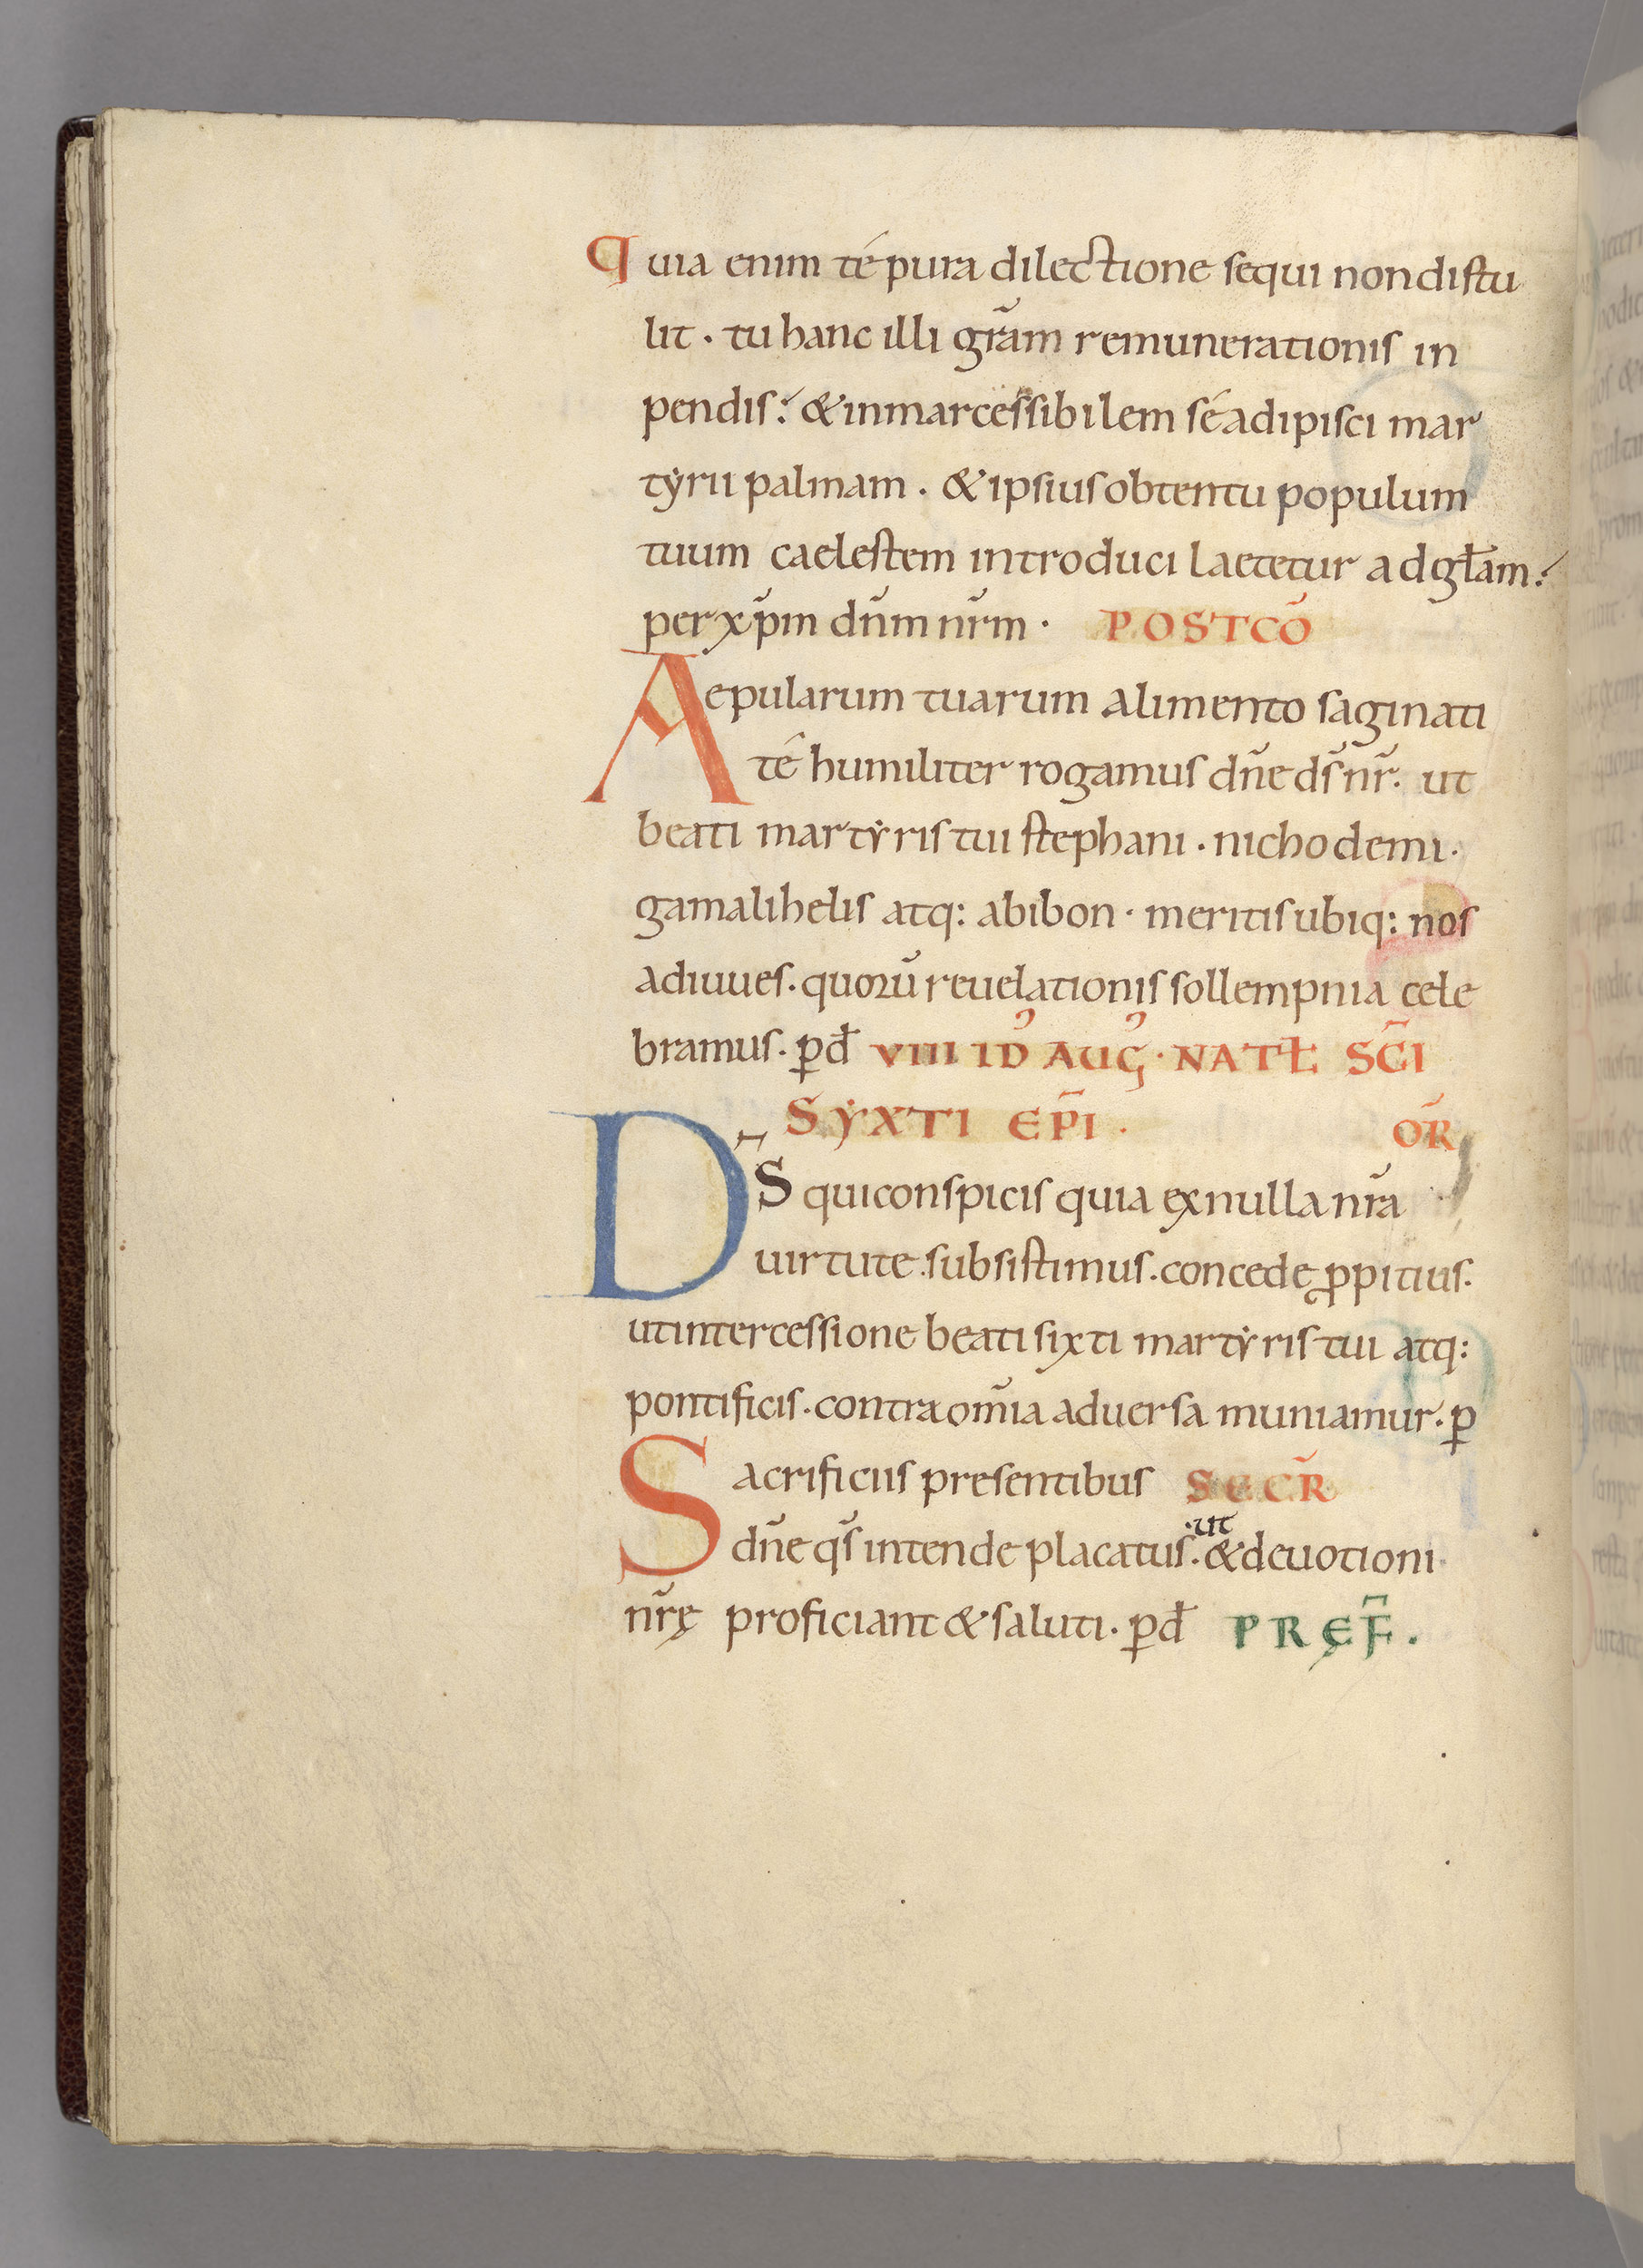 quia enim té pura dilectione sequi non distu
lit · tu hanc illi gr̄am remunerationis in
pendis ⁏ & inmarcessibilem sé adipisci mar
tẏrii palmam · & ipsius obtentu populum
tuum caelestem introduci laetetur ad gl̄am ⁏
per xp̄m dn̄m nr̄m · POSTCŌ
Aepularum tuarum alimento saginati
té humiliter rogamus dn̄e ds̄ nr̄. ut
beati martẏris tui stephani · nichodemi ·
gamalihelis atq: abibon · meritis ubiq: nos
adiuues · quorū reuelationis sollempnia cele
bramus · ꝑ đ VIII ID᾿ AUG᾿ · NATŁ SC̄I
SẎXTI EP̄I · OR̄
DS̄ qui conspicis quia ex nulla nr̄a
uirtute subsistimus · concede ꝓpitius ·
ut intercessione beati sixti martẏris tui atq:
pontificis · contra om̄ia aduersa muniamur · ꝑ
Sacrificiis presentibus SECR̄
dn̄e qs̄ intende placatus · ut & deuotioni
nr̄ę proficiant & saluti · ꝑ đ PRĘF̄ ·